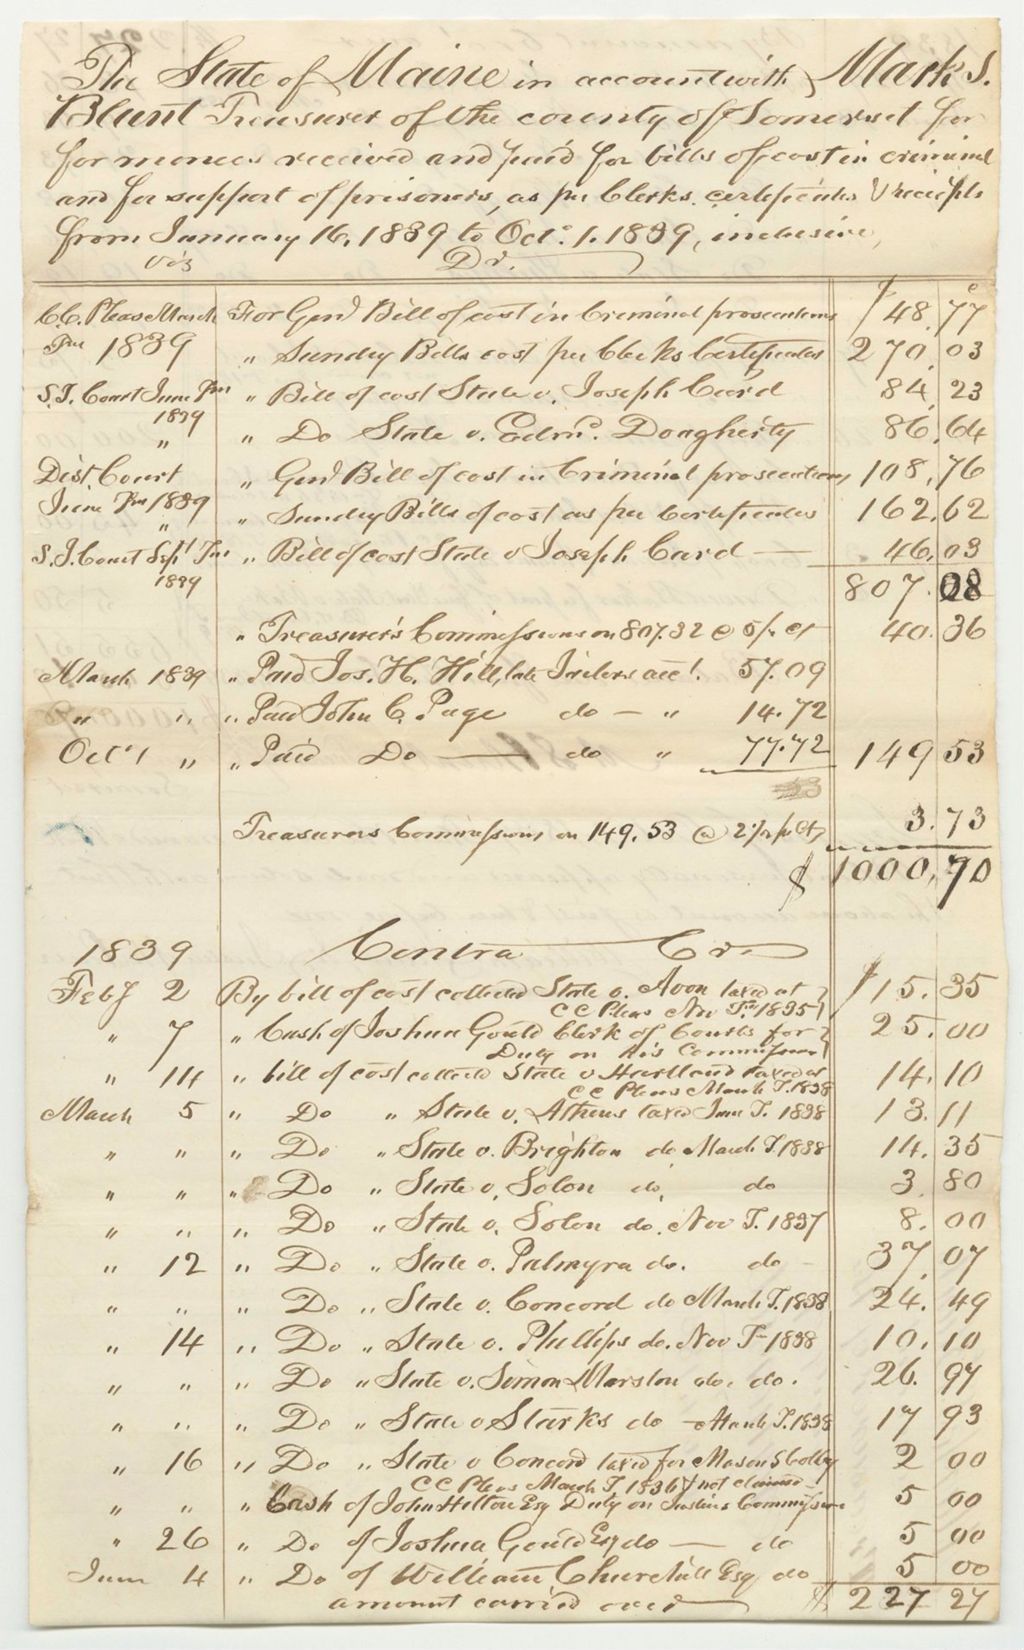 The State of Maine in account with Mark S.
Blunt Treasurer of the county of Somerset for
for monees received and paid for bills of cost in criminal
and for support of prisoners, as per Clerks. certificates & reciepts
from January 16, 1839 to Oct. 1. 1839, inclusive,
viz Dr.
C.C. Pleas March For Genl Bill of cost in Criminal prosecutions $ 48.77
Tm 1839 " Sundry Bills cost per Clerks Certificates 270.03
S.J. Court June Tm " Bill of cost State v. Joseph Card 84.23
1839
" " Do State v. Edmd. Dougherty 86.64
Dist. Court " Genl Bill of cost in Criminal prosecutions 108.76
June Tm 1839 " " Sundry Bills of cost as per Certificates 162.62
S.J. Court Sept Tm " Bill of cost State v Joseph Card — 46.03
1839 807.08
" Treasurer's Commissions on 807.32 @ 5 p. ct 40.36
March 1839 " Paid Jos. H. Hill, late Jailers acct. 57.09
" " " Paid John C. Page do — " 14.72
Oct 1 " " Paid Do — do " 77.72 149 53
Treasurers Commissions on 149.53 @ 2½ p Ct, 3.73
$ 1000,70
1839 Contra Cr.
Feby 2 By bill of cost collected State v. Avon taxed at $15.35
CC Pleas Nov Tm 1835
" 7 " Cash of Joshua Gould Clerk of Courts for 25.00
Duty on his Commission
" 14 " bill of cost collected State v Hartland taxed at 14.10
CC Pleas March T. 1838
March 5 " Do " State v. Athens taxed June T. 1838 13.11
" " " Do " State v. Brighton do March T. 1838 14.35
" " " Do " State v. Solon do, do 3.80
" " " Do " State v. Solon do. Nov T. 1837 8.00
" 12 " Do " State v. Palmyra do. do - 37.07
" " " Do " State v. Concord do March T. 1838 24.49
" 14 " Do " State v. Phillips do. Nov Tm 1838 10.10
" " " Do " State v. Simon Marston do. do. 26.97
" " " Do " State v Starks do - March T. 1838 17 93
" 16 " Do " State v Concord taxed for Mason S Colby 2 00
CC Pleas March T. 1836 & not claimed
" " " Cash of John Hilton Esq Duty on Justices Commission 5 00
" 26 " Do of Joshua Gould Esq do — do 5 00
June 4 " Do of William Churchill Esq do 5 00
amount carried over $ 227 27